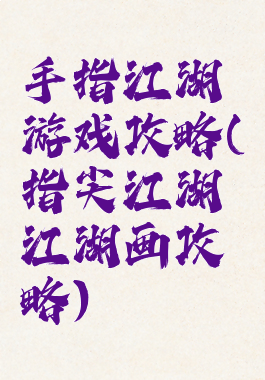 手指江湖
游戏攻略(
指尖江湖
江湖画攻
略)